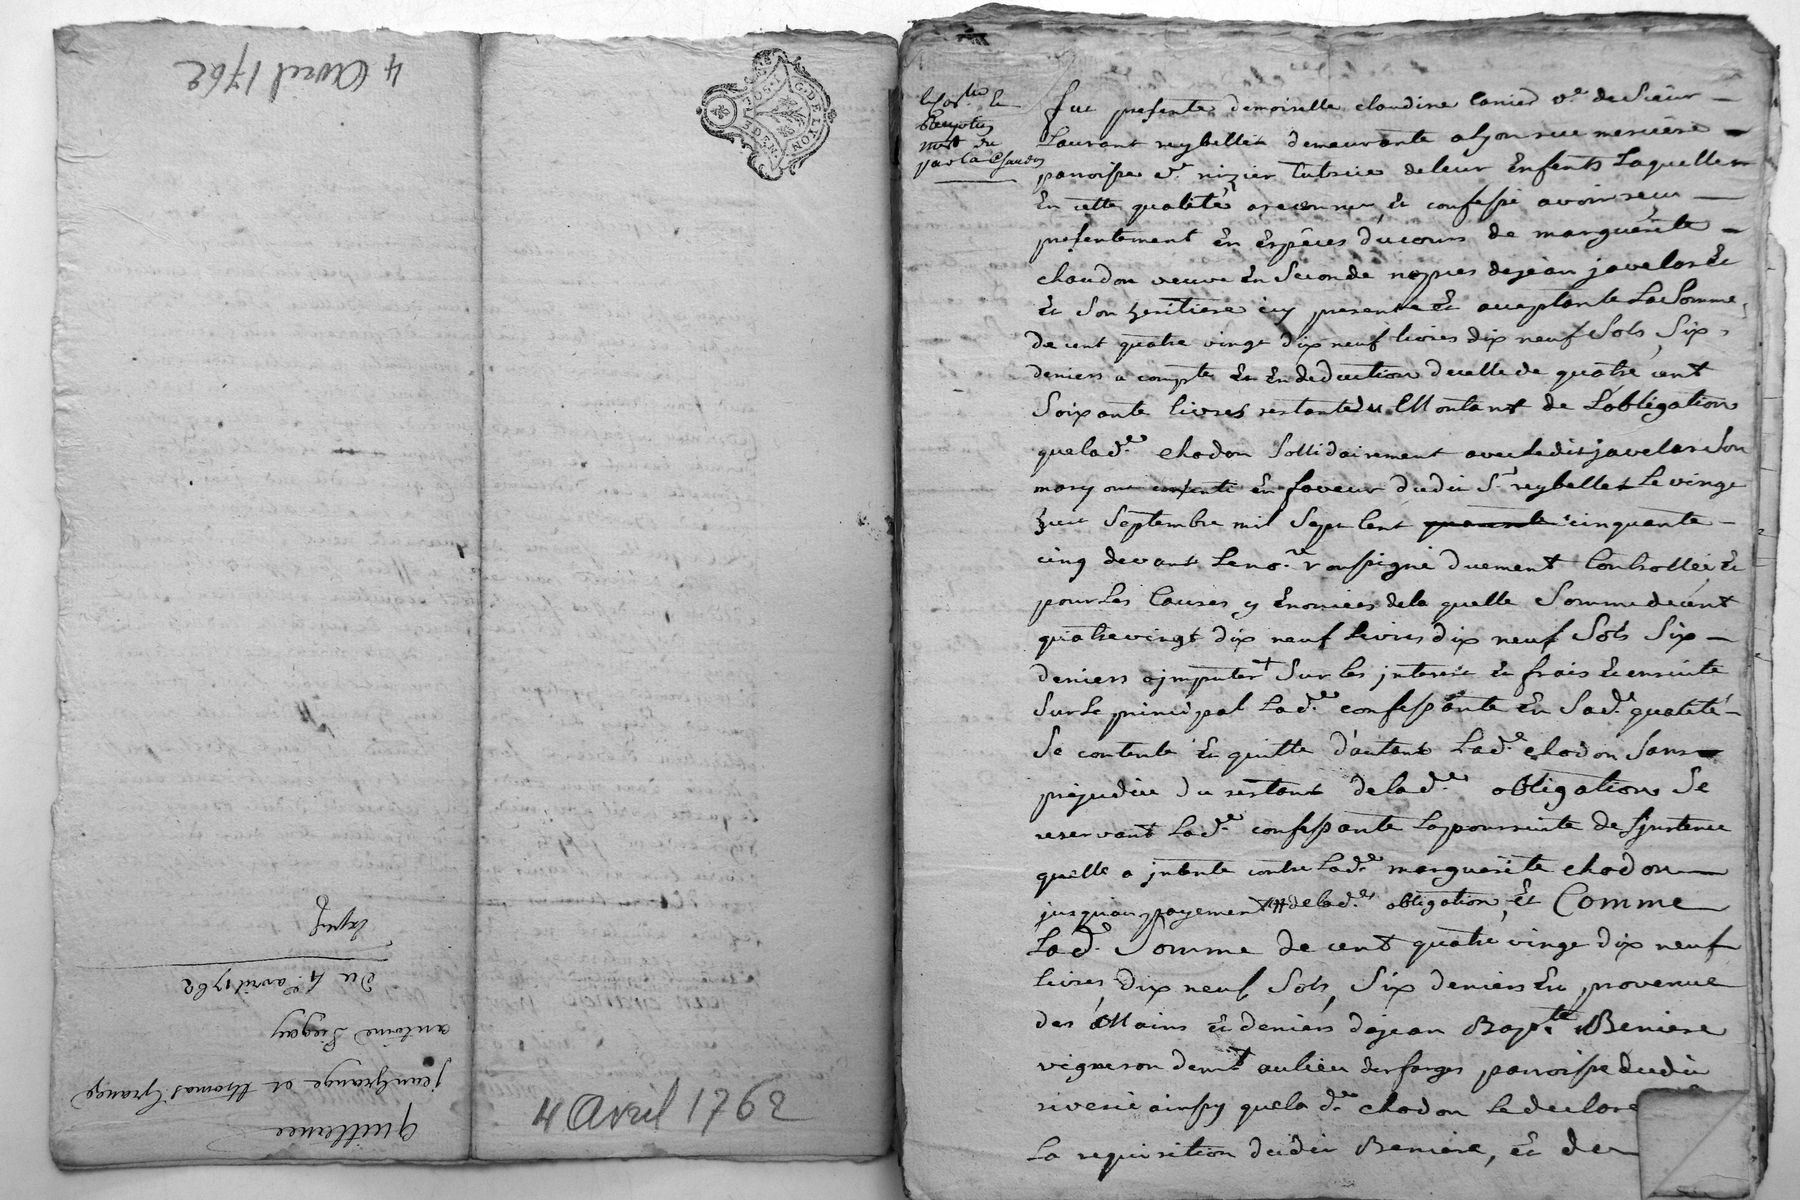 4 Avril 1762
G. DE LYON
4 Avril 1762
quittance
jean Grange et thomas Grange
antoine
du 4e avril 1762
exped
&
du
par la Chaudon
fut presente demoiselle claudine Canier ve. du Sieur
Laurant reybellet demeurante a Lyon rue merciere
paroisse st. nizier tutrice de leur Enfents Laquelle
En cette qualité a reconnu Et confessé avoir receu
presentement En Espèces du cours de marguerite
chaudon veuve En Seconde nopces de jean javelas Et
Et Son heritiere icy presente Et acceptante La Somme
de cent quatre vingt dix neuf livres dix neuf Sols Six
deniers a compte Et En deduction de celle de quatre cent
Soixante livres restante du Montant de L'obligation
que lad.e chodon Sollidairement avec ledit javelas Son
mary ont consenti En faveur dudit Sr. reybellet Le vingt
huit Septembre mil Sept Cent quarante cinquante
cinq devant Le nore. soussigné duement Controllée Et
pour Les Causes y Enoncées de la quelle Somme de cent
quatre vingt dix neuf livres dix neuf Sols Six
deniers a jmputer Sur les jnterets Et frais Et ensuite
Sur Le principal Lad.e confessante En Sad.e qualité
Se contente Et quitte d'autant Lad.e chodon Sans
prejudice du restant de lad.e obligation Se
reservant Lad.e confessante La poursuite de L'jnstence
quelle a jntenté contre Lad.e marguerite chodon
jusqu'au payement de lad.e obligation, Et Comme
Lad.e Somme de cent quatre vingt dix neuf
livres dix neuf Sols, Six deniers Est provenue
des Mains Et deniers de jean Bapte. Beniere
vigneron demt. au lieu des forges paroisse dudit
riverie ainsy que la d.e chodon Le declare
La requisition dudit Beniere, Et de